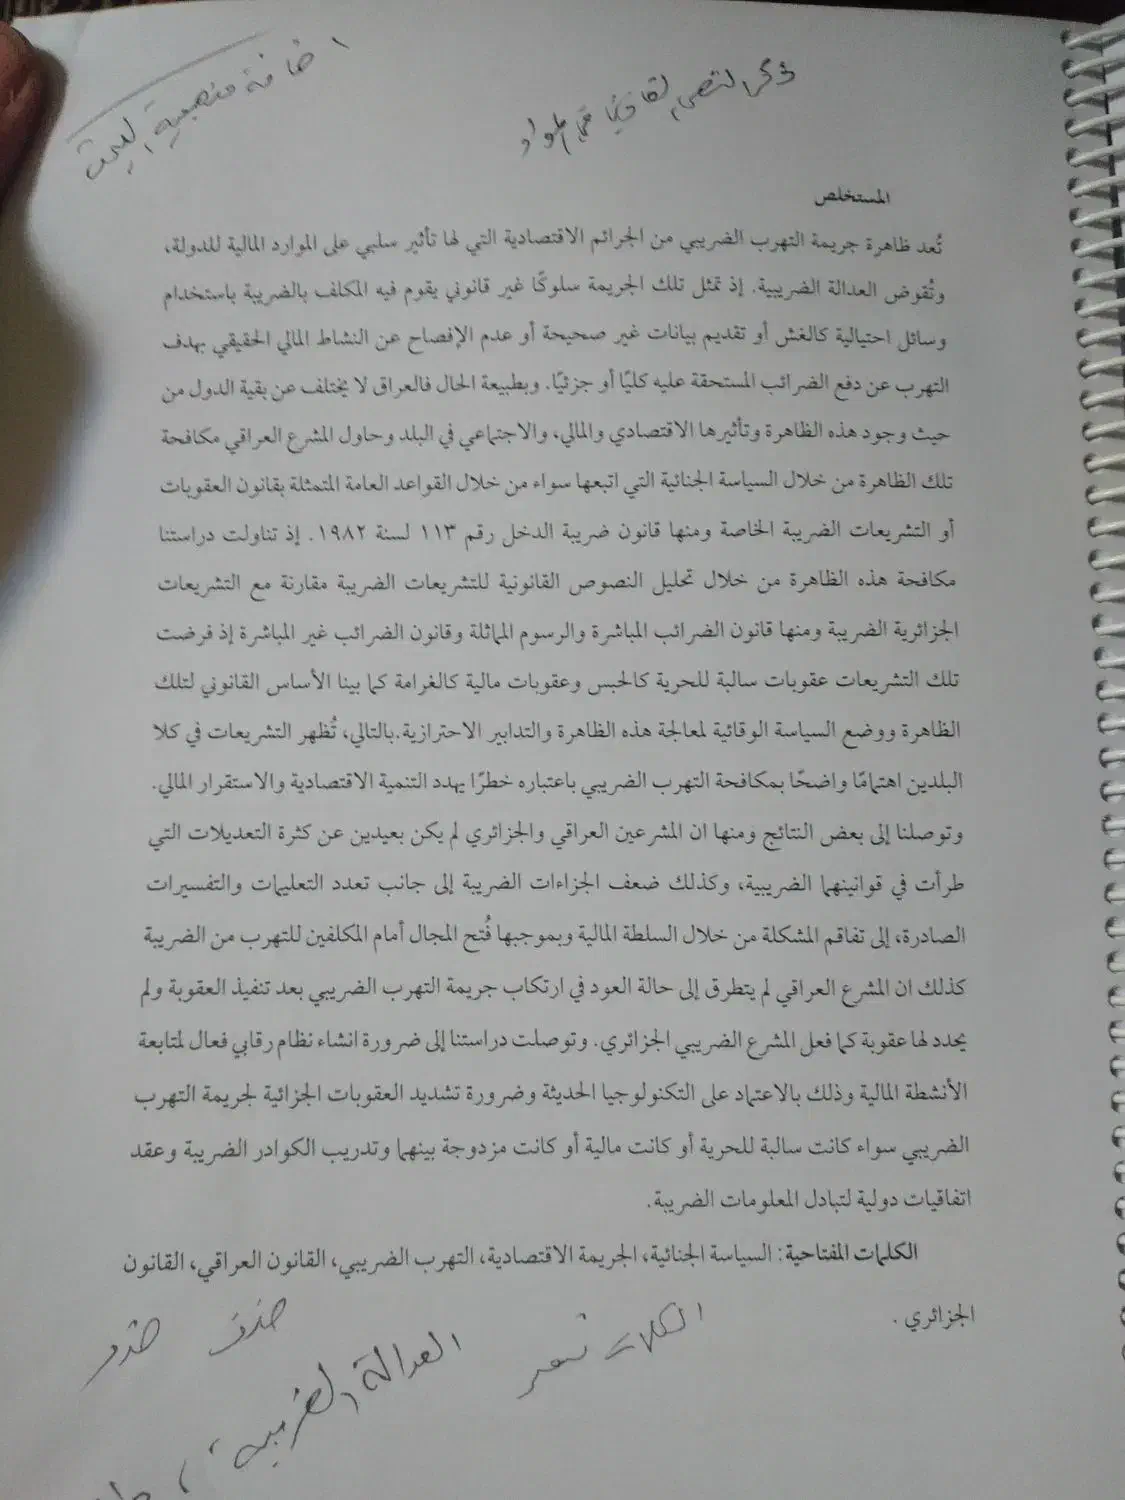 اضافة منهجية البحث
ذكر النصوص القانونية
المستخلص
تُعد ظاهرة جريمة التهرب الضريبي من الجرائم الاقتصادية التي لها تأثير سلبي على الموارد المالية للدولة،
وتُقوض العدالة الضريبية. إذ تمثل تلك الجريمة سلوكًا غير قانوني يقوم فيه المكلف بالضريبة باستخدام
وسائل احتيالية كالغش أو تقديم بيانات غير صحيحة أو عدم الإفصاح عن النشاط المالي الحقيقي بهدف
التهرب عن دفع الضرائب المستحقة عليه كليًا أو جزئيًا. وبطبيعة الحال فالعراق لا يختلف عن بقية الدول من
حيث وجود هذه الظاهرة وتأثيرها الاقتصادي والمالي، والاجتماعي في البلد وحاول المشرع العراقي مكافحة
تلك الظاهرة من خلال السياسة الجنائية التي اتبعها سواء من خلال القواعد العامة المتمثلة بقانون العقوبات
أو التشريعات الضريبة الخاصة ومنها قانون ضريبة الدخل رقم ١١٣ لسنة ١٩٨٢. إذ تناولت دراستنا
مكافحة هذه الظاهرة من خلال تحليل النصوص القانونية للتشريعات الضريبة مقارنة مع التشريعات
الجزائرية الضريبة ومنها قانون الضرائب المباشرة والرسوم المماثلة وقانون الضرائب غير المباشرة إذ فرضت
تلك التشريعات عقوبات سالبة للحرية كالحبس وعقوبات مالية كالغرامة كما بينا الأساس القانوني لتلك
الظاهرة ووضع السياسة الوقائية لمعالجة هذه الظاهرة والتدابير الاحترازية.بالتالي، تُظهر التشريعات في كلا
البلدين اهتمامًا واضحًا بمكافحة التهرب الضريبي باعتباره خطرًا يهدد التنمية الاقتصادية والاستقرار المالي.
وتوصلنا إلى بعض النتائج ومنها ان المشرعين العراقي والجزائري لم يكن بعيدين عن كثرة التعديلات التي
طرأت في قوانينهما الضريبية، وكذلك ضعف الجزاءات الضريبة إلى جانب تعدد التعليمات والتفسيرات
الصادرة، إلى تفاقم المشكلة من خلال السلطة المالية وبموجبها فُتح المجال أمام المكلفين للتهرب من الضريبة
كذلك ان المشرع العراقي لم يتطرق إلى حالة العود في ارتكاب جريمة التهرب الضريبي بعد تنفيذ العقوبة ولم
يحدد لها عقوبة كما فعل المشرع الضريبي الجزائري. وتوصلت دراستنا إلى ضرورة انشاء نظام رقابي فعال لمتابعة
الأنشطة المالية وذلك بالاعتماد على التكنولوجيا الحديثة وضرورة تشديد العقوبات الجزائية لجريمة التهرب
الضريبي سواء كانت سالبة للحرية أو كانت مالية أو كانت مزدوجة بينهما وتدريب الكوادر الضريبة وعقد
اتفاقيات دولية لتبادل المعلومات الضريبة.
الكلمات المفتاحية: السياسة الجنائية، الجريمة الاقتصادية، التهرب الضريبي، القانون العراقي، القانون
الجزائري .
حذف حذف
الكلمات
العدالة الضريبية،